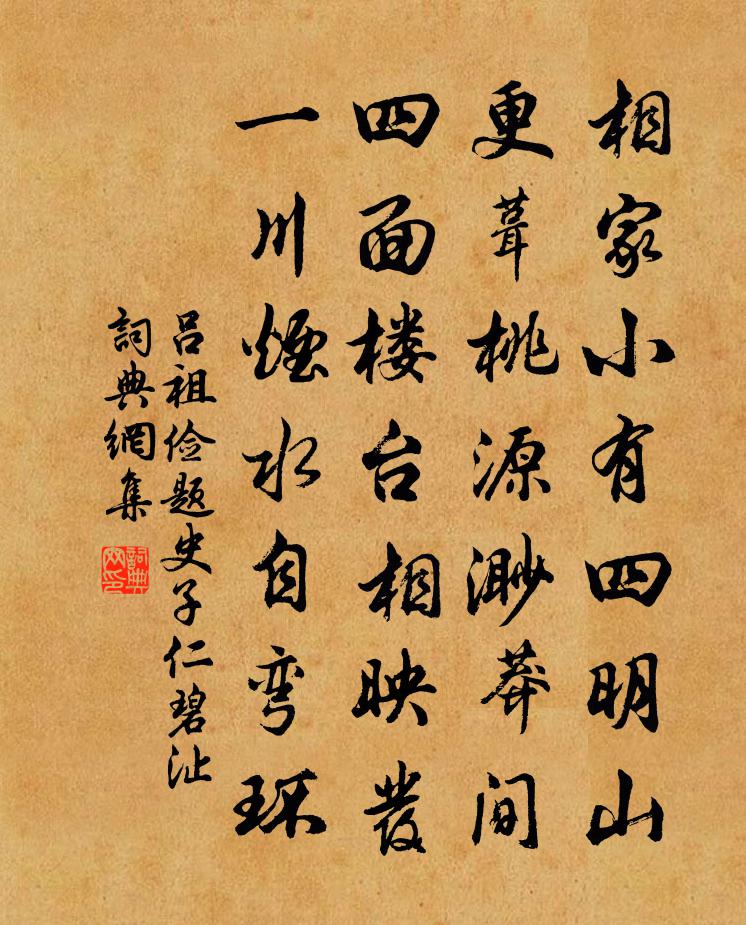 相家小有四明山
更葺桃源渺莽间
四面楼台相映發
一川烟水自弯环
吕祖俭题史子仁碧沚
詞典網集
詞典網印